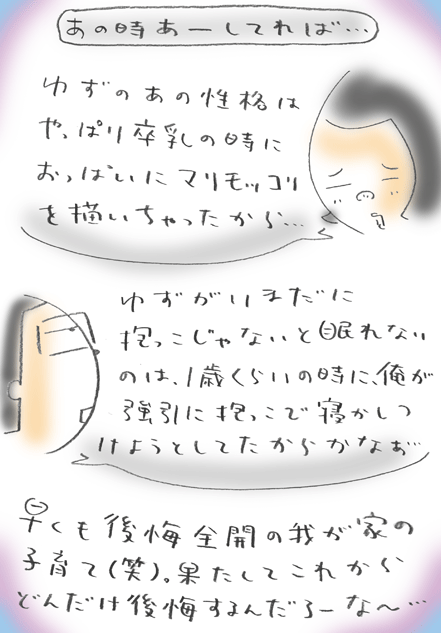 あの時あーしてれば…
ゆずのあの性格は
やっぱり卒乳の時に
おっぱいにマリモッコリ
を描いちゃったから…
ゆずがいまだに
抱っこじゃないと眠れない
のは、1歳くらいの時に、俺が
強引に抱っこで寝かしつ
けようとしてたからかなぁ…
早くも後悔全開の我が家の
子育て(笑)。果たしてこれから
どんだけ後悔するんだろーな〜…